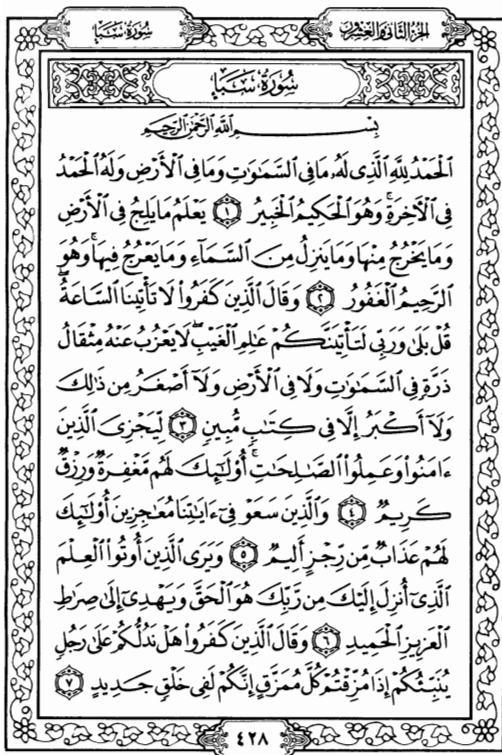 الجزء الثاني والعشرون
سورة سبإ
سورة سبإ
بِسْمِ اللَّهِ الرَّحْمَٰنِ الرَّحِيمِ
الْحَمْدُ لِلَّهِ الَّذِى لَهُۥ مَا فِى السَّمَٰوَٰتِ وَمَا فِى الْأَرْضِ وَلَهُ الْحَمْدُ
فِى الْءَاخِرَةِ ۚ وَهُوَ الْحَكِيمُ الْخَبِيرُ ١ يَعْلَمُ مَا يَلِجُ فِى الْأَرْضِ
وَمَا يَخْرُجُ مِنْهَا وَمَا يَنزِلُ مِنَ السَّمَآءِ وَمَا يَعْرُجُ فِيهَا ۚ وَهُوَ
الرَّحِيمُ الْغَفُورُ ٢ وَقَالَ الَّذِينَ كَفَرُوا۟ لَا تَأْتِينَا السَّاعَةُ ۖ
قُلْ بَلَىٰ وَرَبِّى لَتَأْتِيَنَّكُمْ عَٰلِمِ الْغَيْبِ ۖ لَا يَعْزُبُ عَنْهُ مِثْقَالُ
ذَرَّةٍ فِى السَّمَٰوَٰتِ وَلَا فِى الْأَرْضِ وَلَآ أَصْغَرُ مِن ذَٰلِكَ
وَلَآ أَكْبَرُ إِلَّا فِى كِتَٰبٍ مُّبِينٍ ٣ لِّيَجْزِىَ الَّذِينَ
ءَامَنُوا۟ وَعَمِلُوا۟ الصَّٰلِحَٰتِ ۚ أُو۟لَٰٓئِكَ لَهُم مَّغْفِرَةٌ وَرِزْقٌ
كَرِيمٌ ٤ وَالَّذِينَ سَعَوْ فِىٓ ءَايَٰتِنَا مُعَٰجِزِينَ أُو۟لَٰٓئِكَ
لَهُمْ عَذَابٌ مِّن رِّجْزٍ أَلِيمٌ ٥ وَيَرَى الَّذِينَ أُوتُوا۟ الْعِلْمَ
الَّذِىٓ أُنزِلَ إِلَيْكَ مِن رَّبِّكَ هُوَ الْحَقَّ وَيَهْدِىٓ إِلَىٰ صِرَٰطِ
الْعَزِيزِ الْحَمِيدِ ٦ وَقَالَ الَّذِينَ كَفَرُوا۟ هَلْ نَدُلُّكُمْ عَلَىٰ رَجُلٍ
يُنَبِّئُكُمْ إِذَا مُزِّقْتُمْ كُلَّ مُمَزَّقٍ إِنَّكُمْ لَفِى خَلْقٍ جَدِيدٍ ٧
٤٢٨